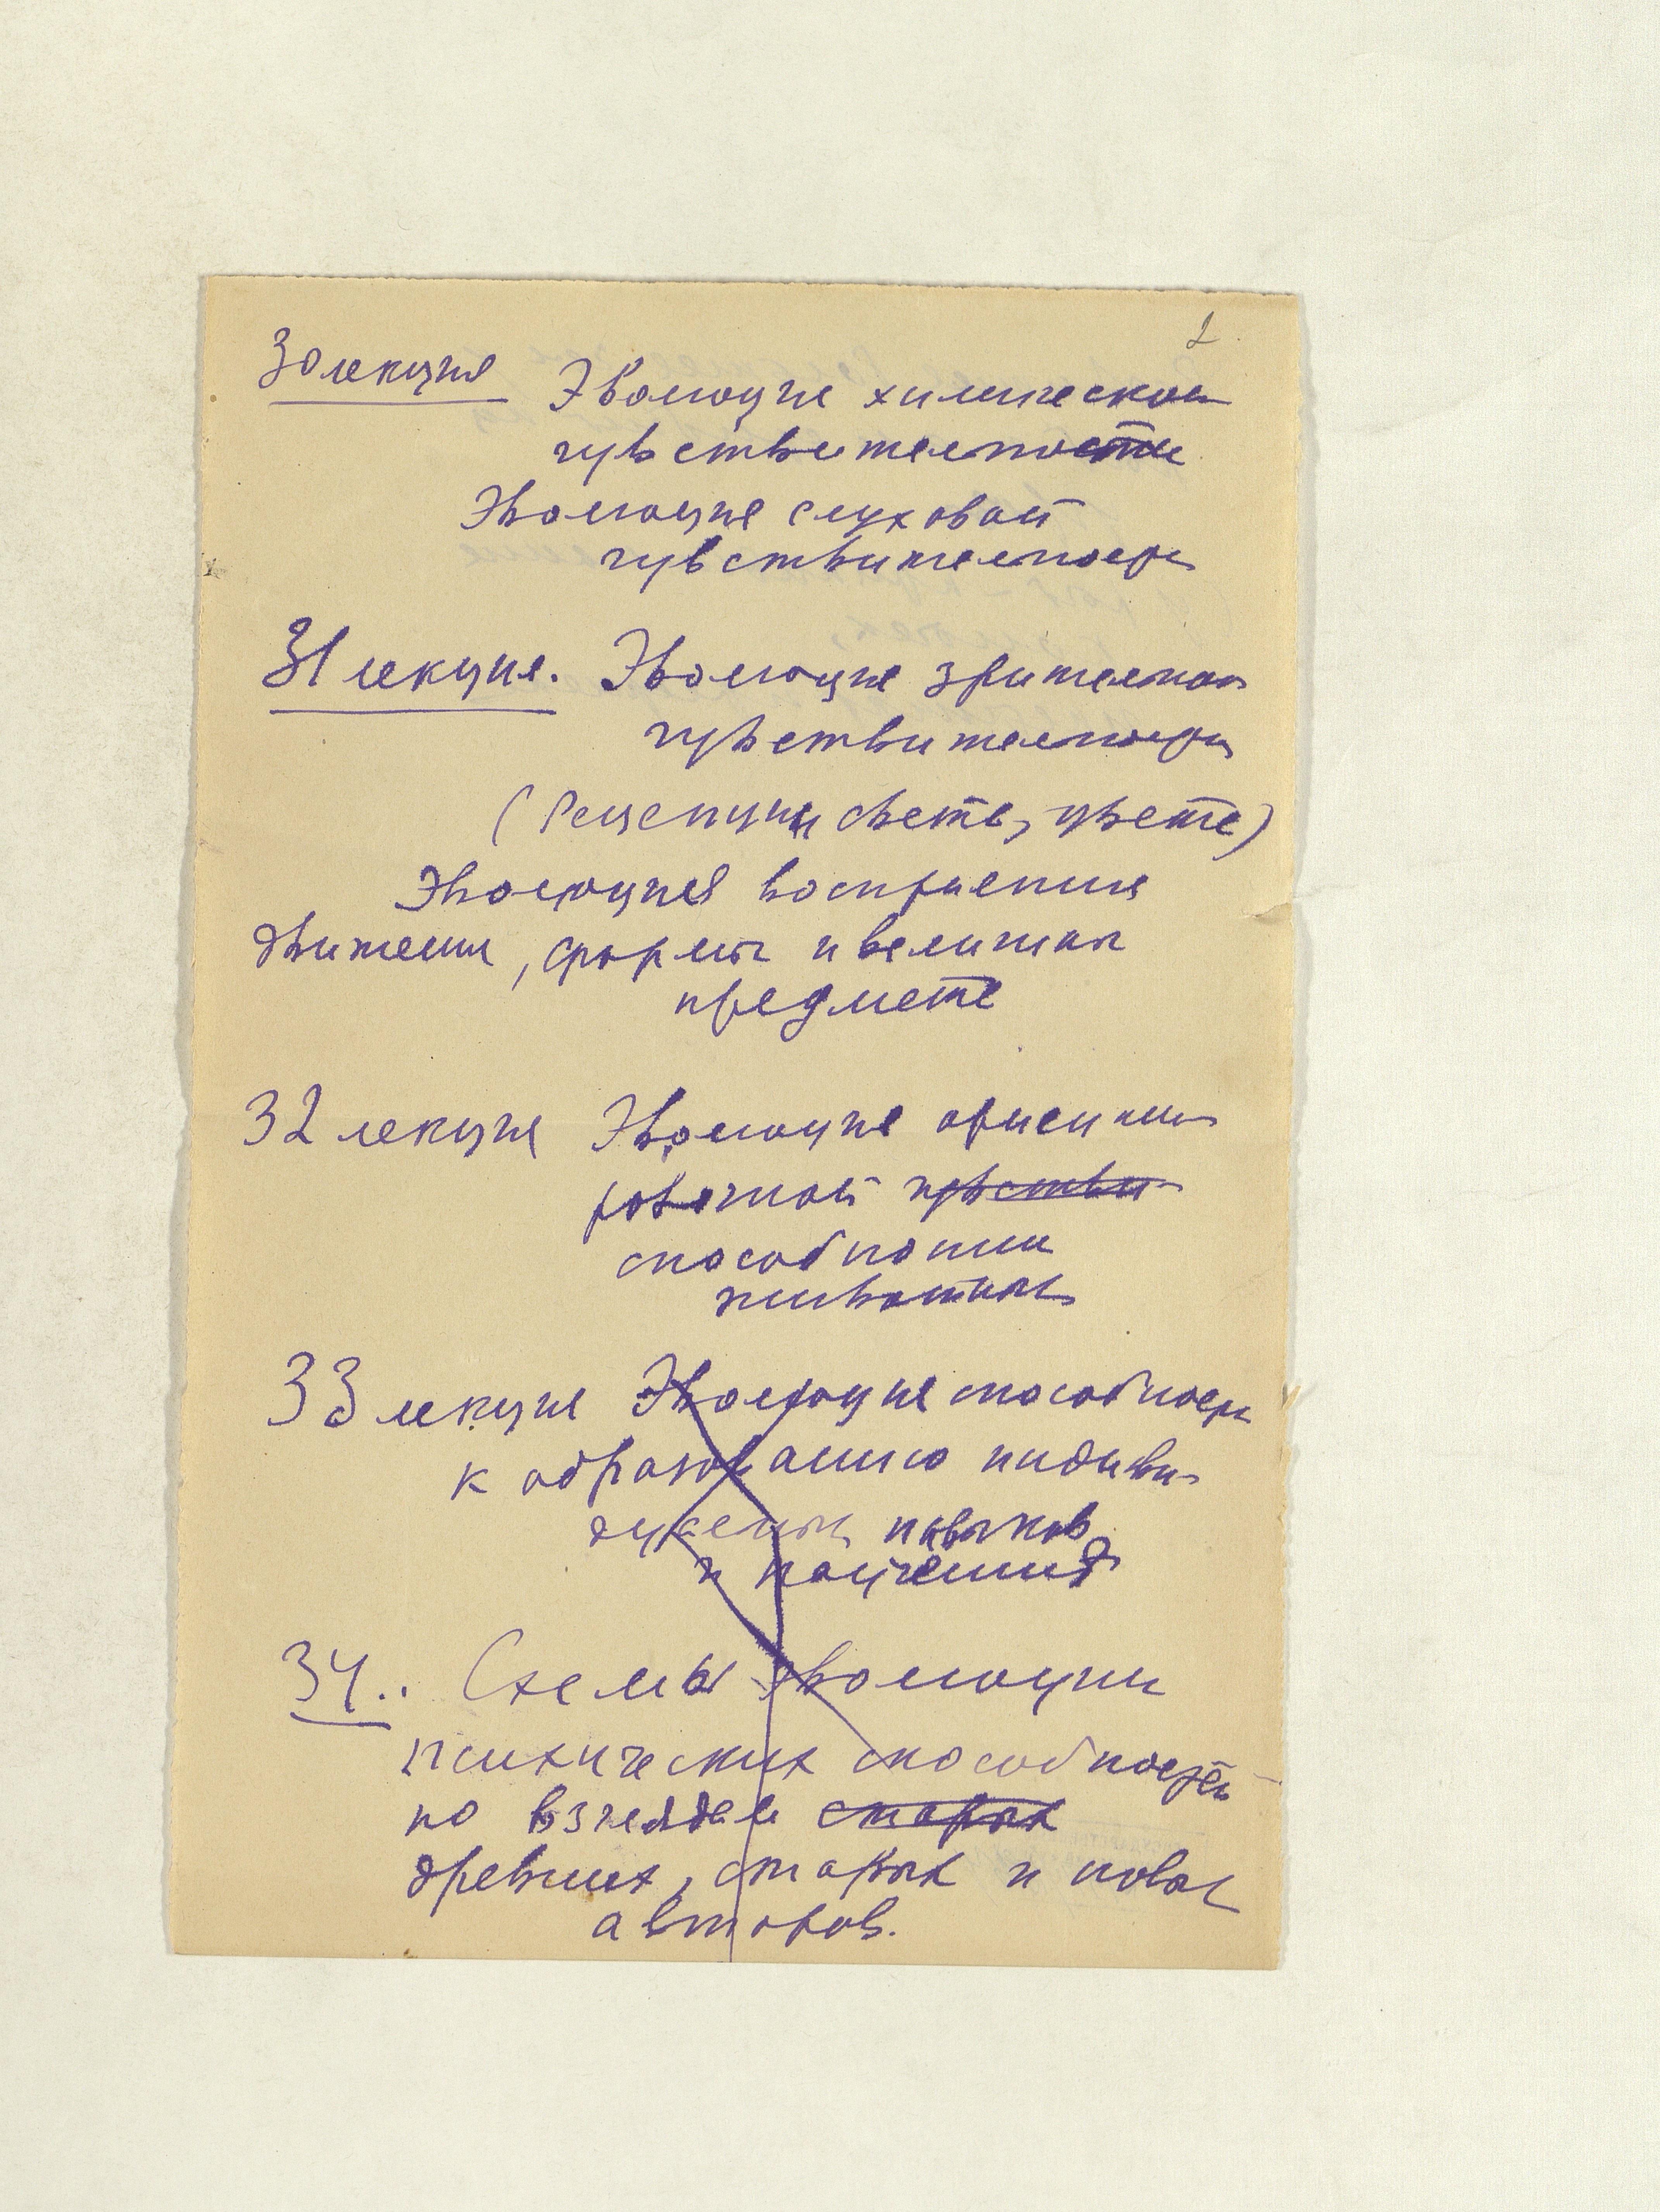 2
30 лекция Эволюция химической
чувствительности
Эволюция слуховой
чувствительности
31 лекция. Эволюция зрительной
чувствительности
(Рецепции света, цвета)
Эволюция восприятия
движения, формы и величины
предмета
32 лекция Эволюция ориенти-
ровочной чувстви-
способности
животных
33 лекция Эволюция способности
к образованию индиви-
дуальных навыков
и научения
34.. Схемы эволюции
психических способностей
по взглядам старых
древних, старых и новых
авторов.